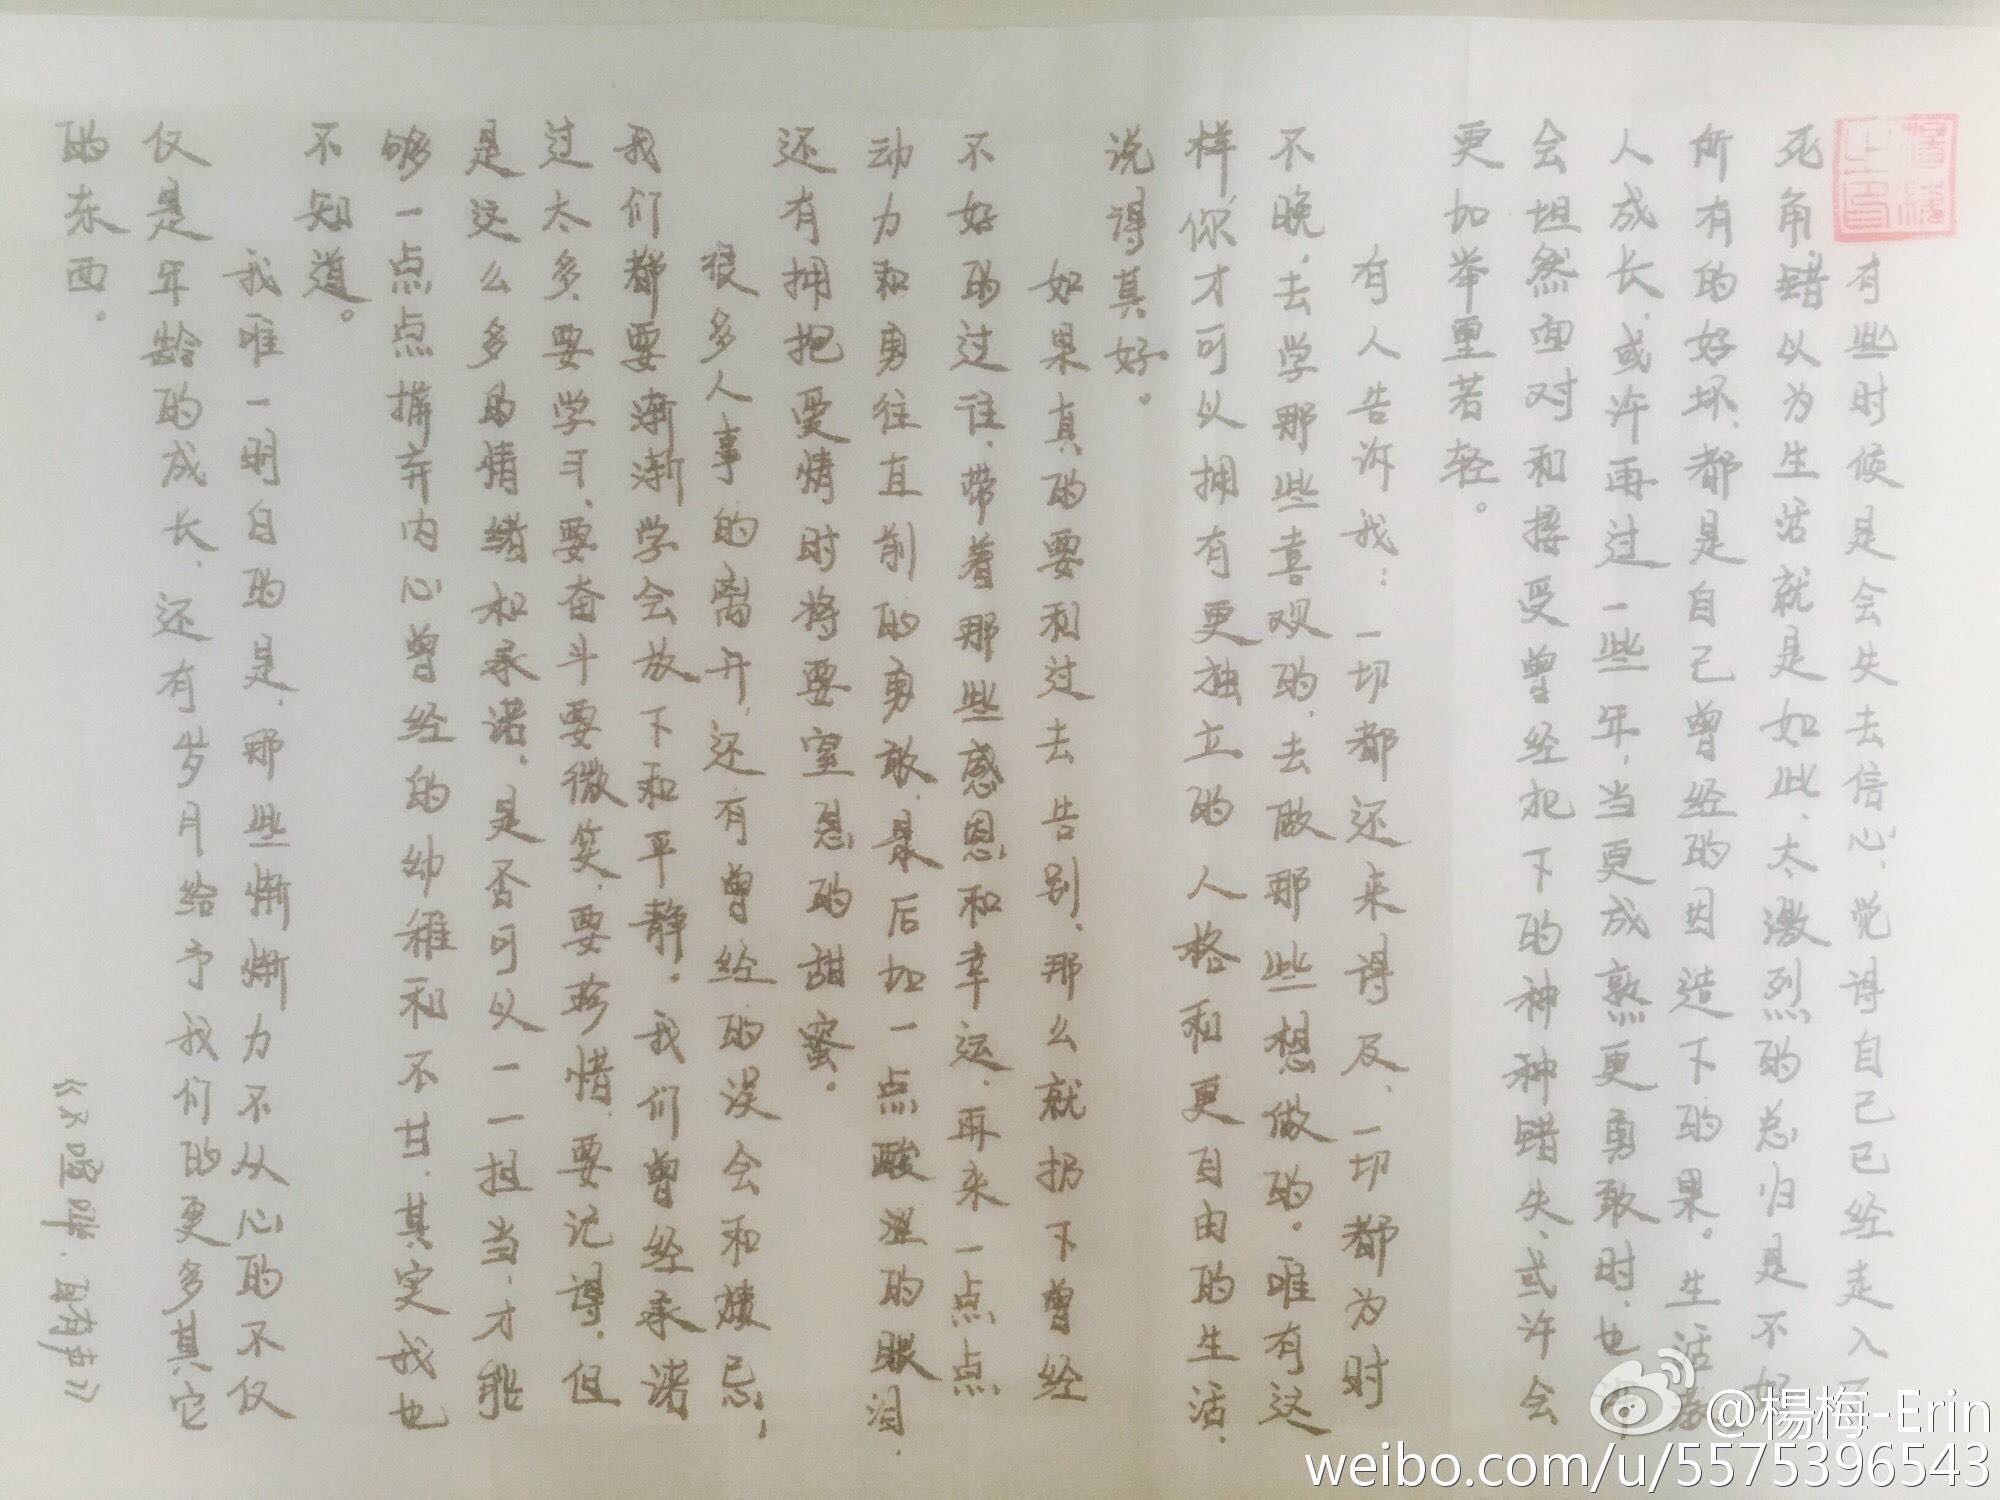 有些时候是会失去信心、觉得自己已经走入了
死角、错以为生活就是如此、太激烈的总归是不好
所有的好坏、都是自己曾经的因造下的果。生活教
人成长、或许再过一些年、当更成熟更勇敢时、也许
会坦然面对和接受曾经犯下的种种错失、或许会
更加举重若轻。
有人告诉我：一切都还来得及、一切都为时
不晚。去学那些喜欢的、去做那些想做的。唯有这
样、你才可以拥有更独立的人格和更自由的生活、
说得真好。
如果真的要和过去告别、那么就扔下曾经
不好的过往、带着那些感恩和幸运、再来一点点
动力和勇往直前的勇敢、最后加一点酸涩的眼泪、
还有拥抱爱情时将要窒息的甜蜜。
很多人事的离开、还有曾经的误会和嫉忌，
我们都要渐渐学会放下和平静。我们曾经承诺
过太多、要学习、要奋斗要微笑、要珍惜、要记得、但
是这么多的情绪和承诺、是否可以一一担当、才能
够一点点摒弃内心曾经的幼稚和不甘、其实我也
不知道。
我唯一明白的是、那些惭惭力不从心的不仅
仅是年龄的成长、还有岁月给予我们的更多其它
的东西。
@楊梅-Erin
weibo.com/u/5575396543